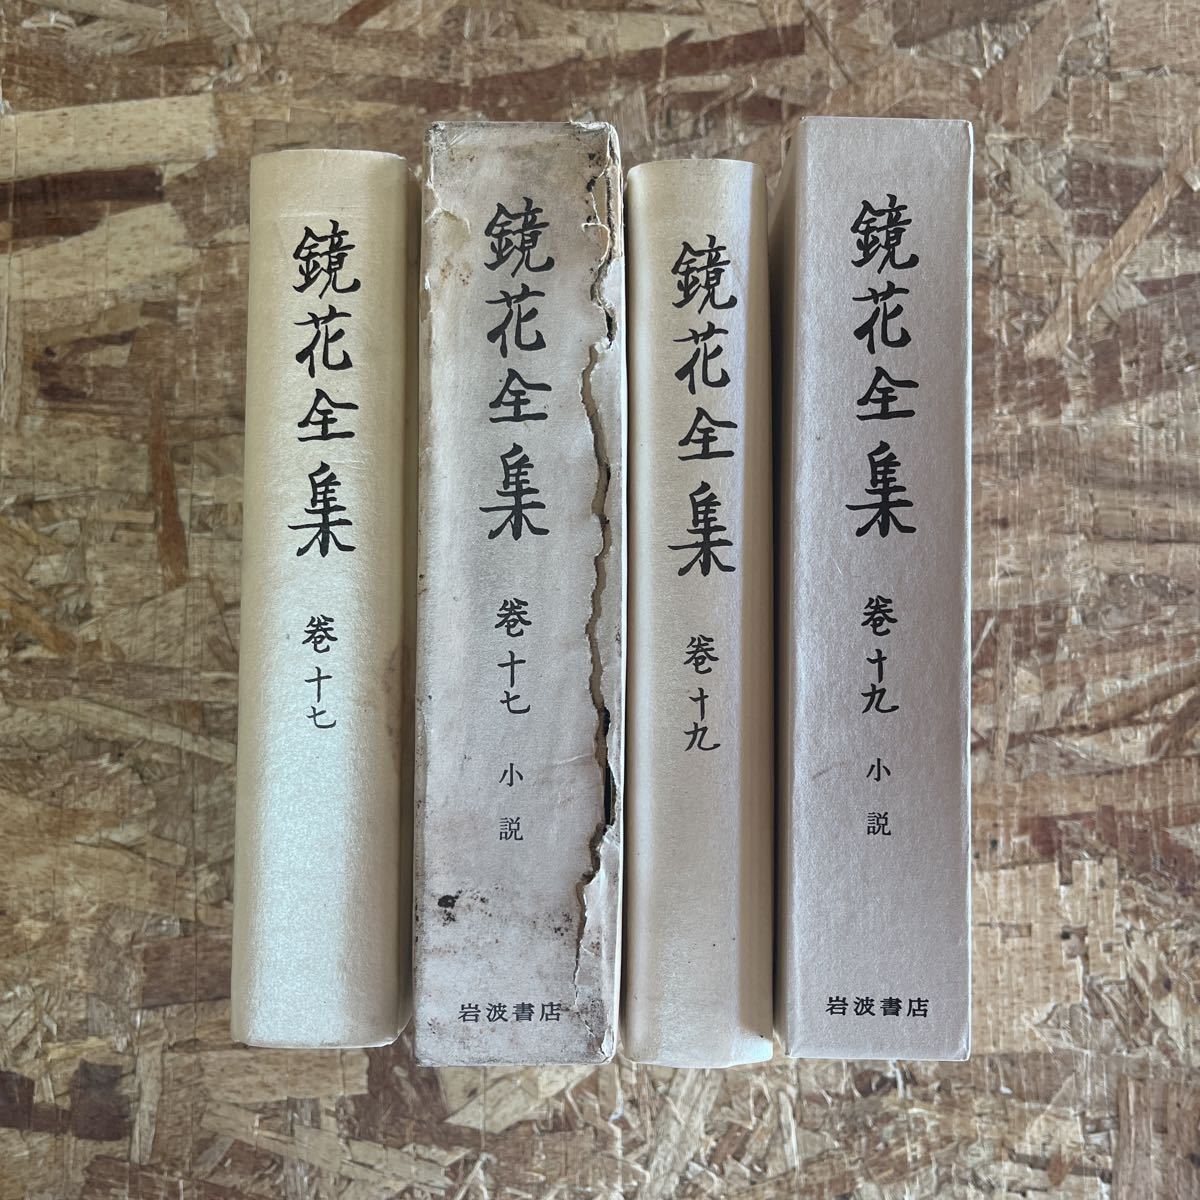 鏡花全集
卷十七
鏡花全集
卷十七
小説
岩波書店
鏡花全集
卷十九
鏡花全集
卷十九
小説
岩波書店